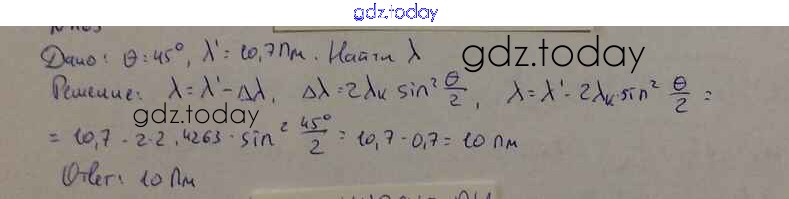 gdz.today
Дано: θ = 45°, λ' = 10,7 Пм. Найти λ
gdz.today
Решение: λ = λ' - Δλ, Δλ = 2λк sin² θ/2, λ = λ' - 2λк·sin² θ/2 =
gdz.today
= 10,7 - 2·2,4263·sin² 45°/2 = 10,7 - 0,7 = 10 Пм
Ответ: 10 Пм